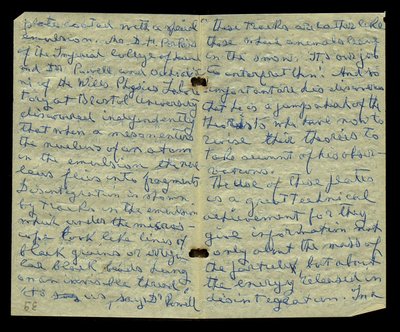 plates coated with a special
emulsion. Mr D. H. Perkins
of the Imperial College of London
and Dr Powell and Occhialini
of the Wills Physics Labora
tory at Bristol University
discovered independently
that when a meson enters
the nucleus of an atom
in the emulsion the nuc
leus flies into fragments
Disintegration is shown
by tracks in the emulsion
which under the micros-
cope look like lines of
black grains or
black beads hung
on an invisible thread.
"To us, says Dr Powell
these tracks are rather like
those which animals leave
in the snow. It's our job
to interpret them". And so
important are his discoveries
that he is a jump ahead of the
theorists who have now to
revise their theories to
take account of his obser
vations.
The use of these plates
is a great technical
achievement for they
give information not
only about the mass of
the particles but about
the energy released in
disintegration.